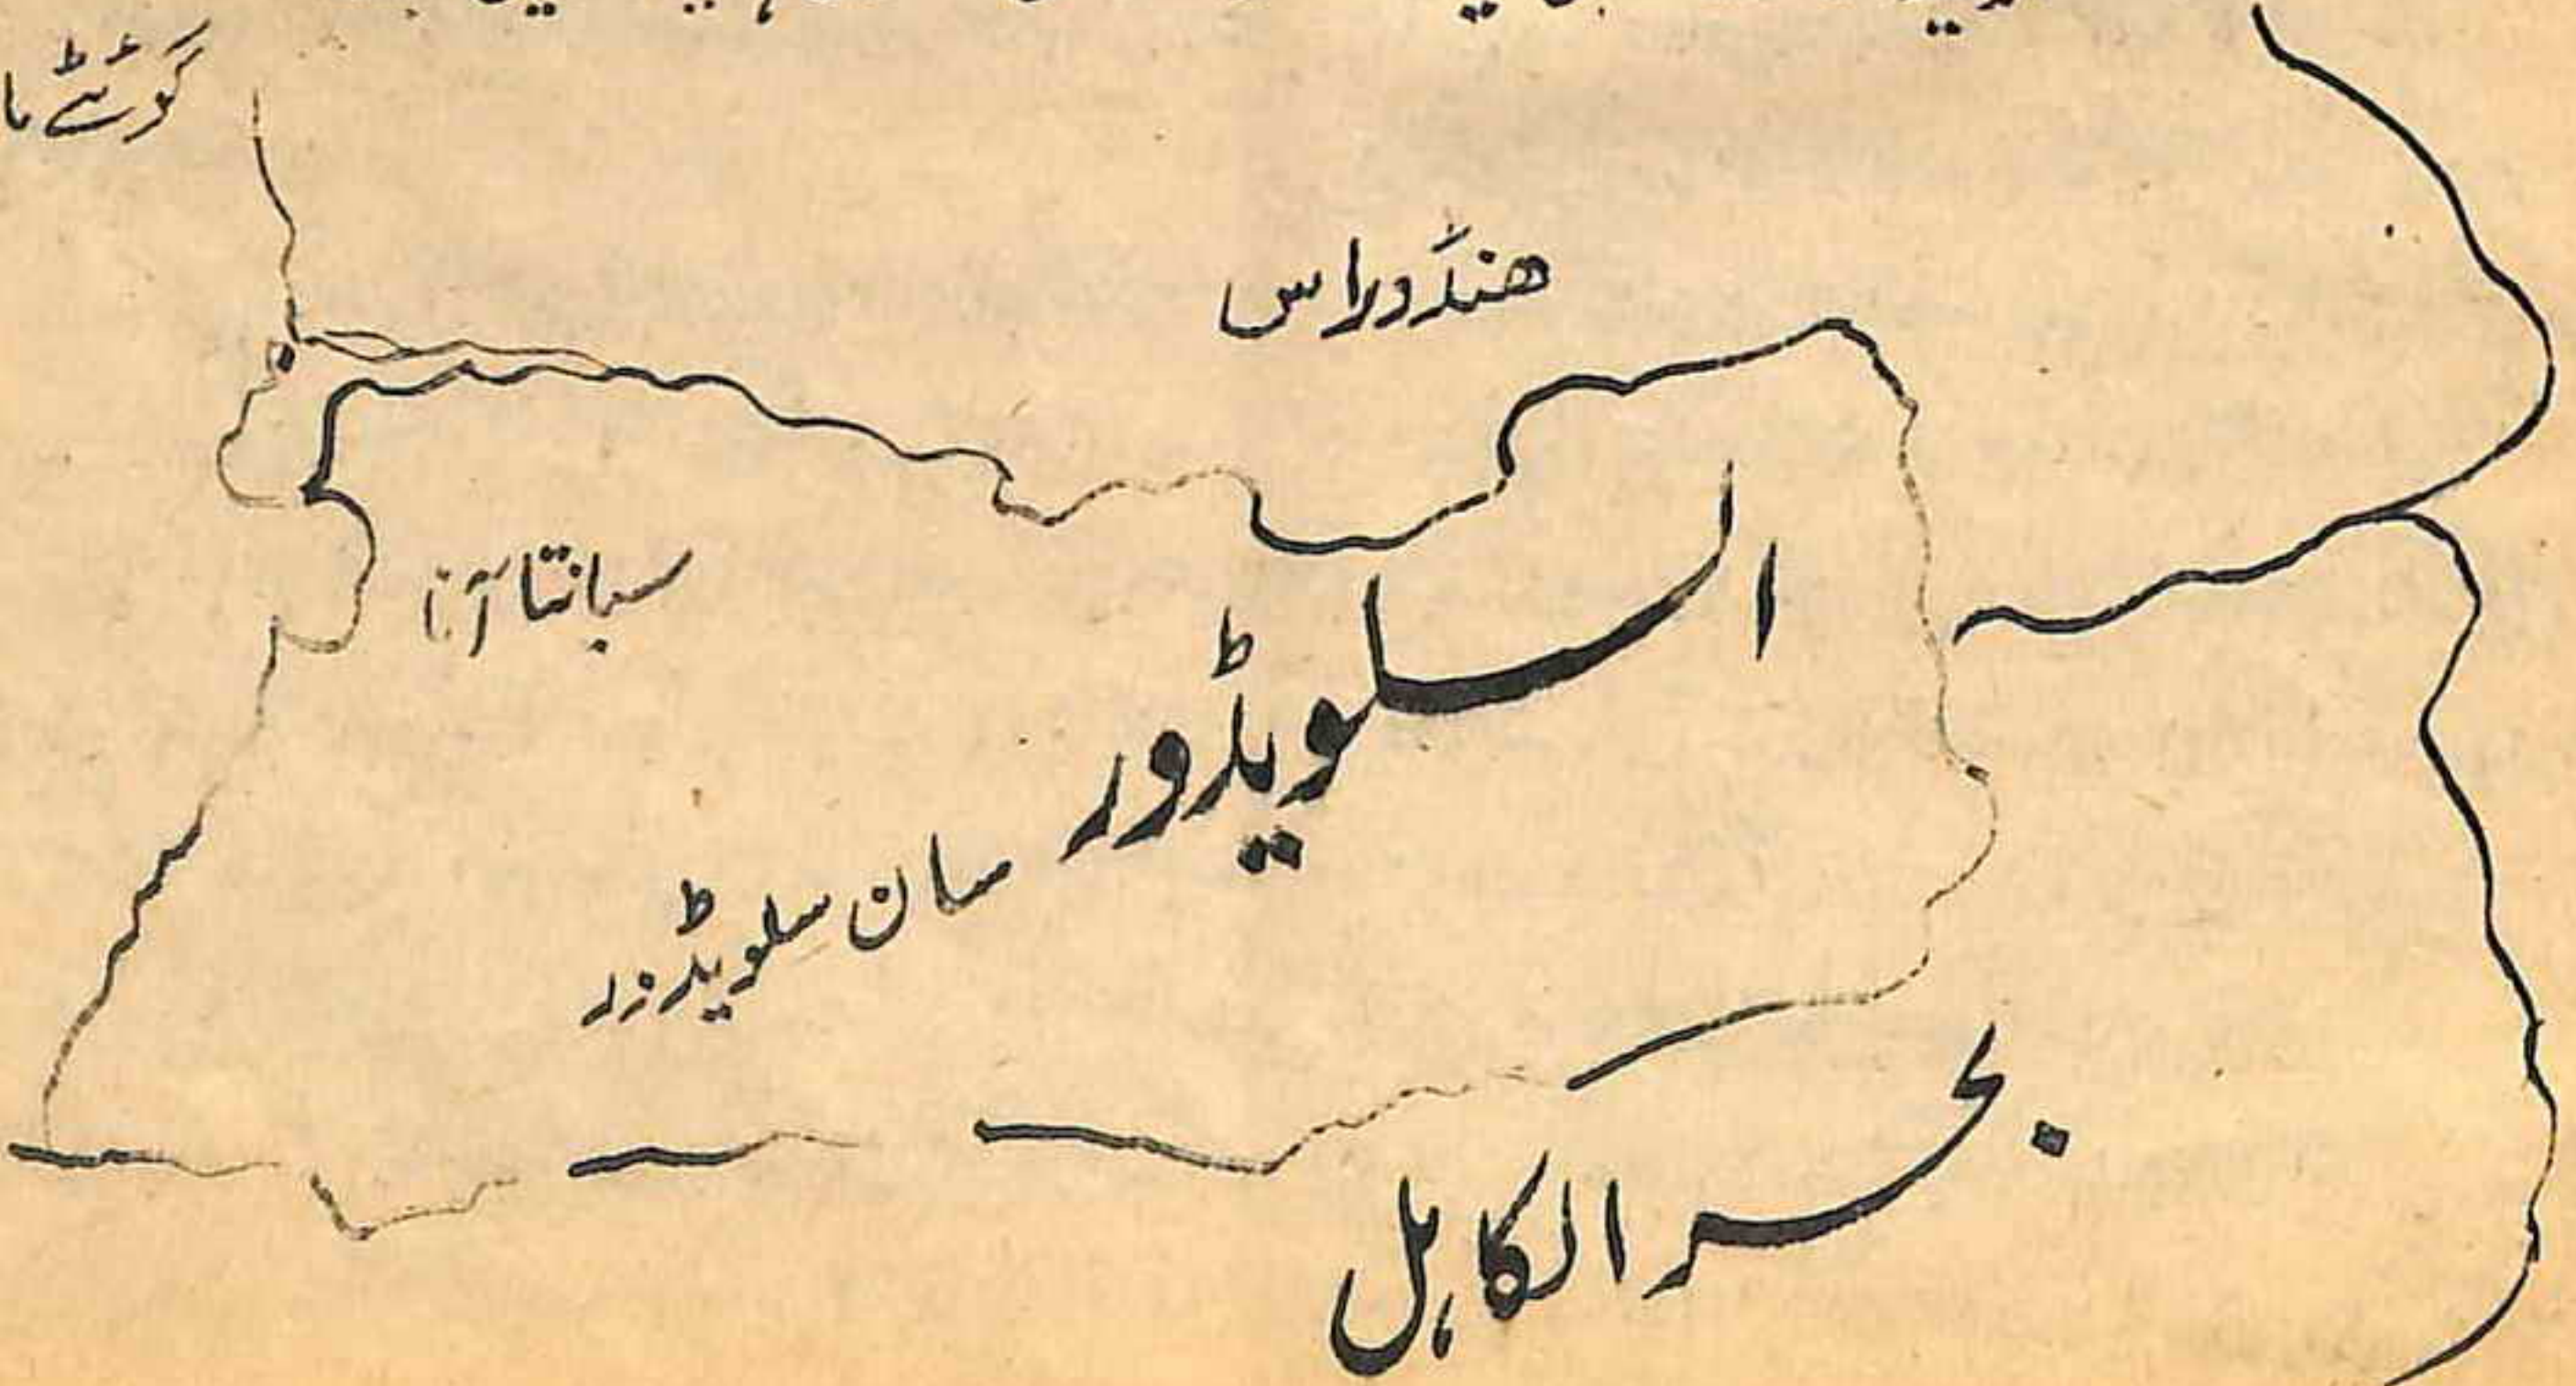 گوئٹے ما
ھنڈوراس
سانتا آنا
السلویڈور
سان سلویڈور
بحر الکاہل